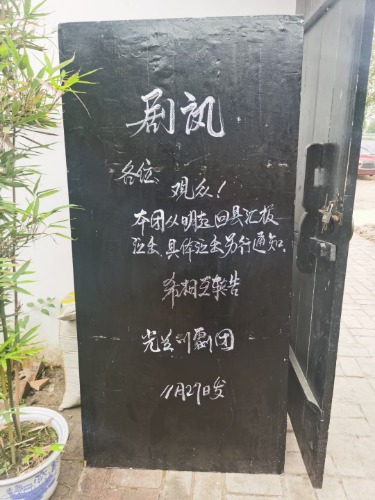 剧讯
各位
观众!
本团从明起回县汇报
演出,具体演出另行通知。
希相互转告
光兰刘剧团
11月27日发